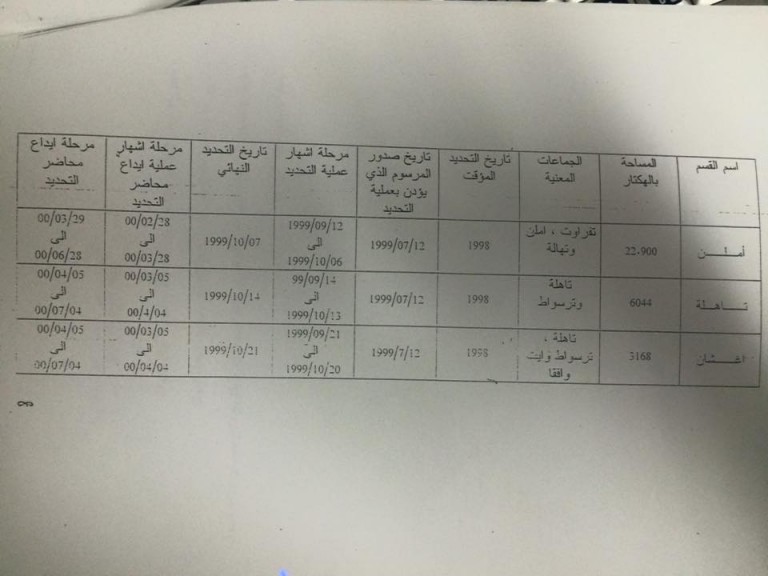 اسم القسم
المساحة
بالهكتار
الجماعات
المعنية
تاريخ التحديد
المؤقت
تاريخ صدور
المرسوم الذي
يؤذن بعملية
التحديد
مرحلة اشهار
عملية التحديد
تاريخ التحديد
النهائي
مرحلة اشهار
عملية ايداع
محاضر
التحديد
مرحلة ايداع
محاضر
التحديد
أملـــن
22.900
تفراوت ، املن
وتهالة
1998
1999/07/12
1999/09/12
الى
1999/10/06
1999/10/07
00/02/28
الى
00/03/28
00/03/29
الى
00/06/28
تـــاهـــلة
6044
تاهلة
وترسواط
1998
1999/07/12
99/09/14
الى
1999/10/13
1999/10/14
00/03/05
الى
00/4/04
00/04/05
الى
00/07/04
3168
تاهلة ،
ترسواط وايت
وافقا
1998
1999/7/12
1999/09/21
الى
1999/10/20
1999/10/21
00/03/05
الى
00/04/04
00/04/05
الى
00/07/04
8